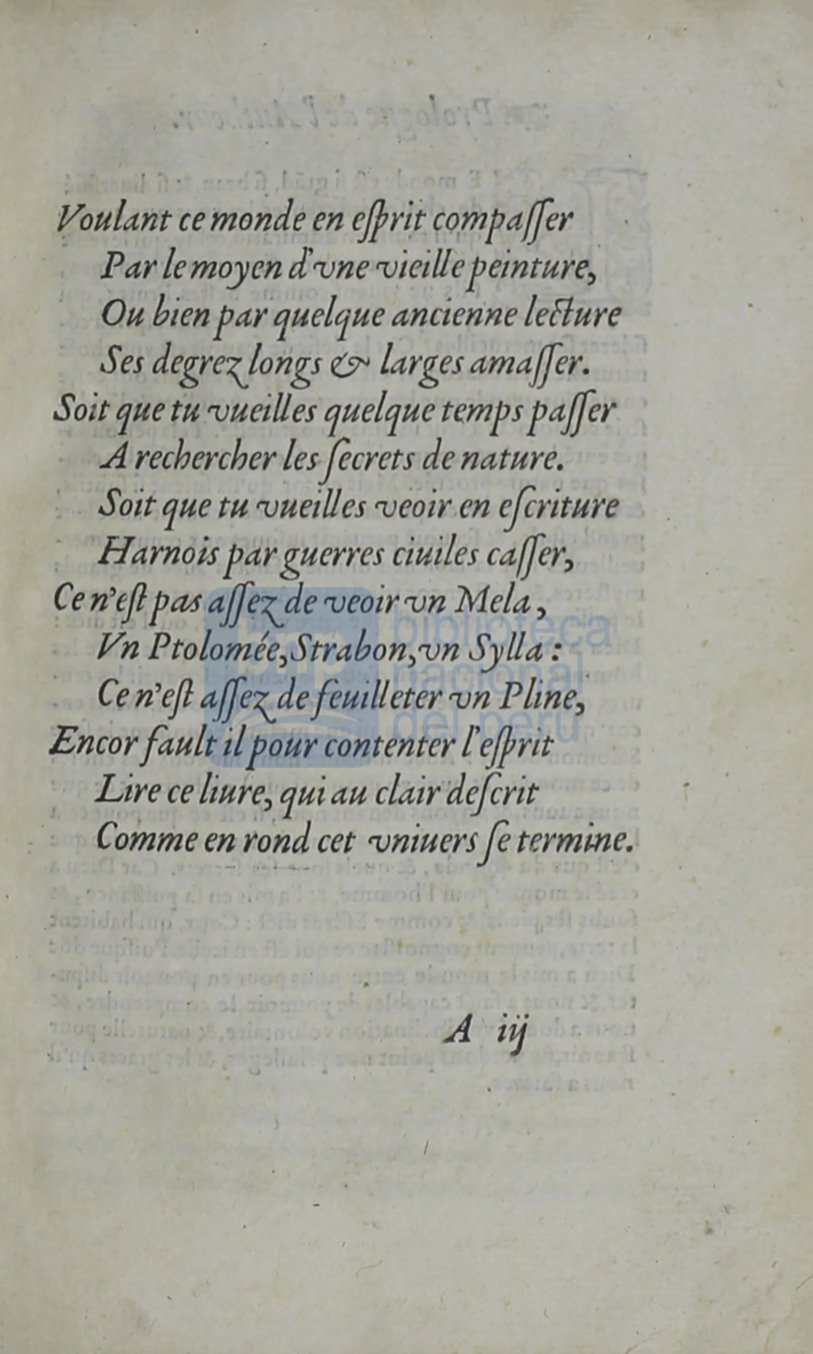 Voulant ce monde en eſprit compaſſer
Par le moyen d'vne vieille peinture,
Ou bien par quelque ancienne lecture
Ses degrez longs & larges amaſſer.
Soit que tu vueilles quelque temps paſſer
A rechercher les ſecrets de nature.
Soit que tu vueilles veoir en eſcriture
Harnois par guerres ciuiles caſſer,
Ce n'eſt pas aſſez de veoir vn Mela,
Vn Ptolomée, Strabon, vn Sylla :
Ce n'eſt aſſez de feuilleter vn Pline,
Encor fault il pour contenter l'eſprit
Lire ce liure, qui au clair deſcrit
Comme en rond cet vniuers ſe termine.
A iij
biblioteca
nacional
del perú